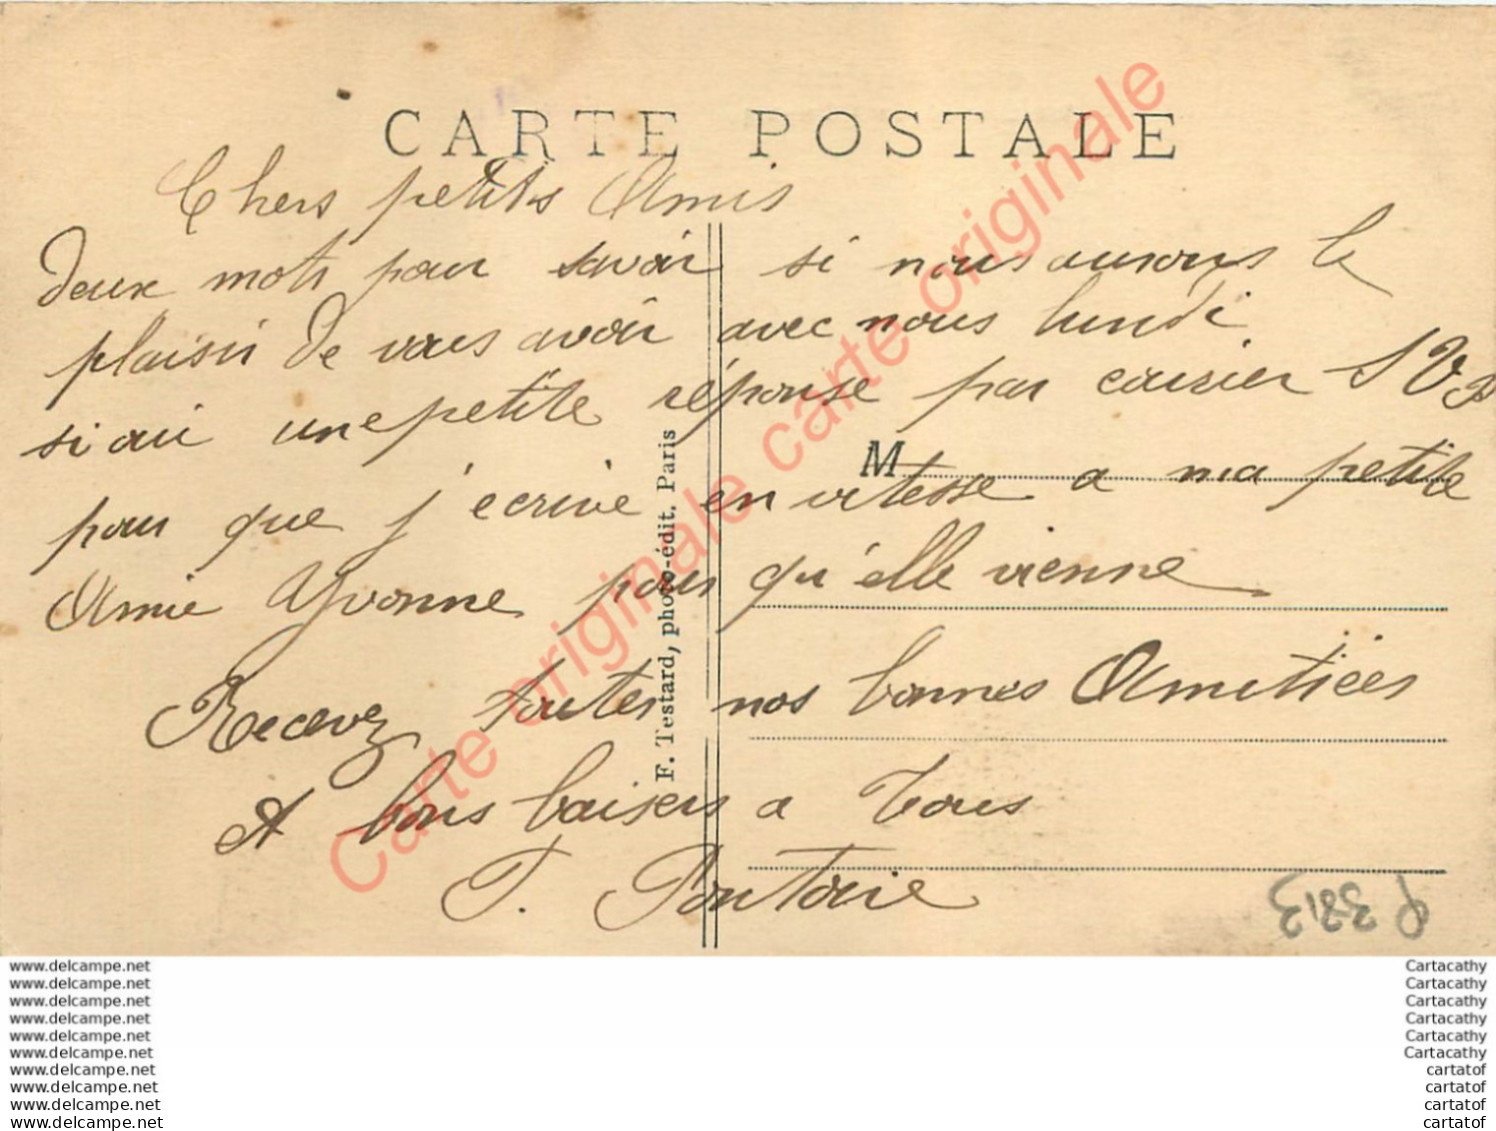 CARTE POSTALE
Chers petits Amis
deux mots pour savoir si nous aurons le
plaisir de vous avoir avec nous lundi
si oui une petite réponse par courier S V P
M
pour que j'ecrive en vitesse a ma petite
Amie Yvonne pour qu'elle vienne
Recevez toutes nos bonnes Amitiées
A bons baisers a Tous
T. Pontoire
F. Testard, photo-édit. Paris
P 3813
Carte originale carte originale
www.delcampe.net Cartacathy
www.delcampe.net Cartacathy
www.delcampe.net Cartacathy
www.delcampe.net Cartacathy
www.delcampe.net Cartacathy
www.delcampe.net Cartacathy
www.delcampe.net cartatof
www.delcampe.net cartatof
www.delcampe.net cartatof
www.delcampe.net cartatof